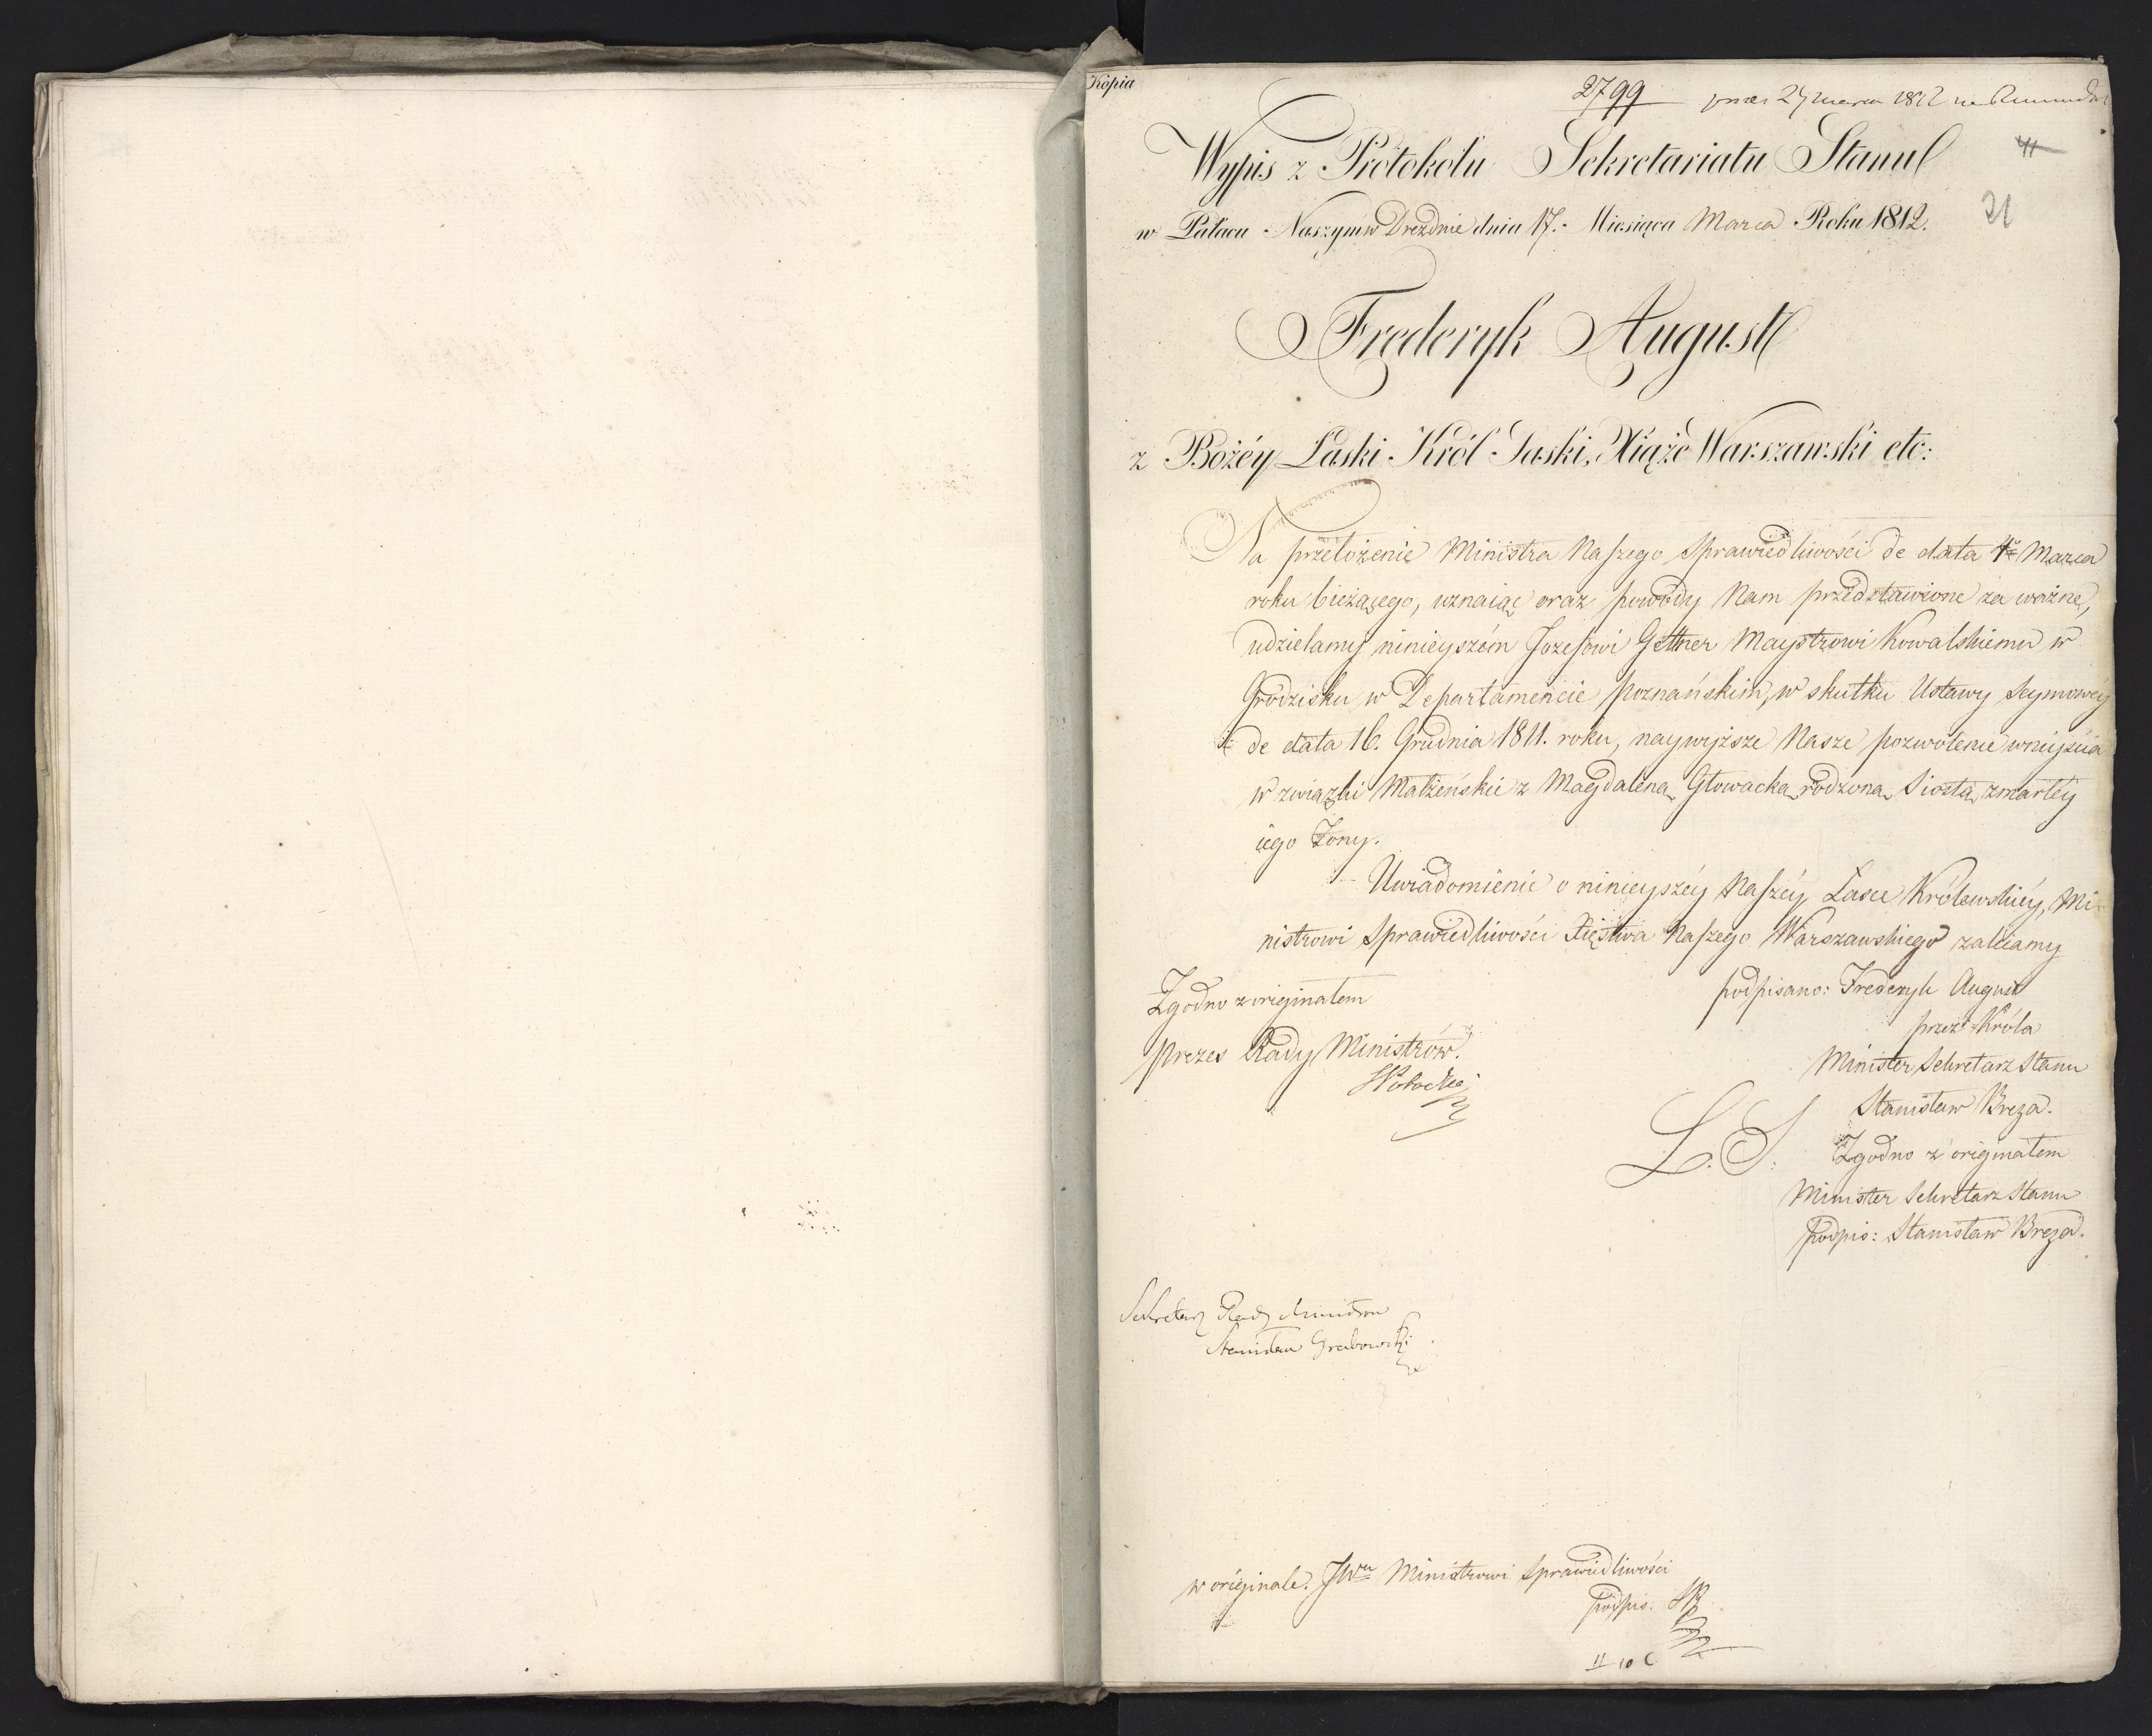 Kopia
2799 24 marca 1812 na
Wypis z Protokołu Sekretariatu Stanu
41
w Pałacu Naszym w Dreźdnie dnia 17. Miesiąca Marca Roku 1812.
21
Frederyk August
z Bożéy Łaski Król Saski, Xiążę Warszawski etc:
Na przełożenie Ministra Naszego Sprawiedliwości de data 4º Marca
roku bieżącego, uznaiąc oraz powody Nam przedstawione za ważne,
udzielamy ninieyszém Jozefowi Gettner Maystrowi Kowalskiemu w
Grodzisku w Departamencie poznańskim, w skutku Ustawy Seymowéy
de data 16. Grudnia 1811. roku, naywyższe Nasze pozwolenie wniyścia
w związki Małżeńskie z Magdaleną Głowacką rodzoną Siostą zmarłéy
iego Żony.
Uwiadomienie o ninieyszéy Naszéy Łasce Królewskiéy, Mi-
nistrowi Sprawiedliwości Xięstwa Naszego Warszawskiego zalecamy
Zgodno z originałem
podpisano: Frederyk August
przez Króla
Prezes Rady Ministrów.
Minister Sekretarz Stanu
SPotocki
Stanisław Breza.
L. S.
Zgodno z originałem
Minister Sekretarz Stanu
podpis: Stanisław Breza.
Sekretarz Rady Ministrow
Stanisław Grabowski
w originale. JWu Ministrowi Sprawiedliwości
podpis. SP
11 10 C